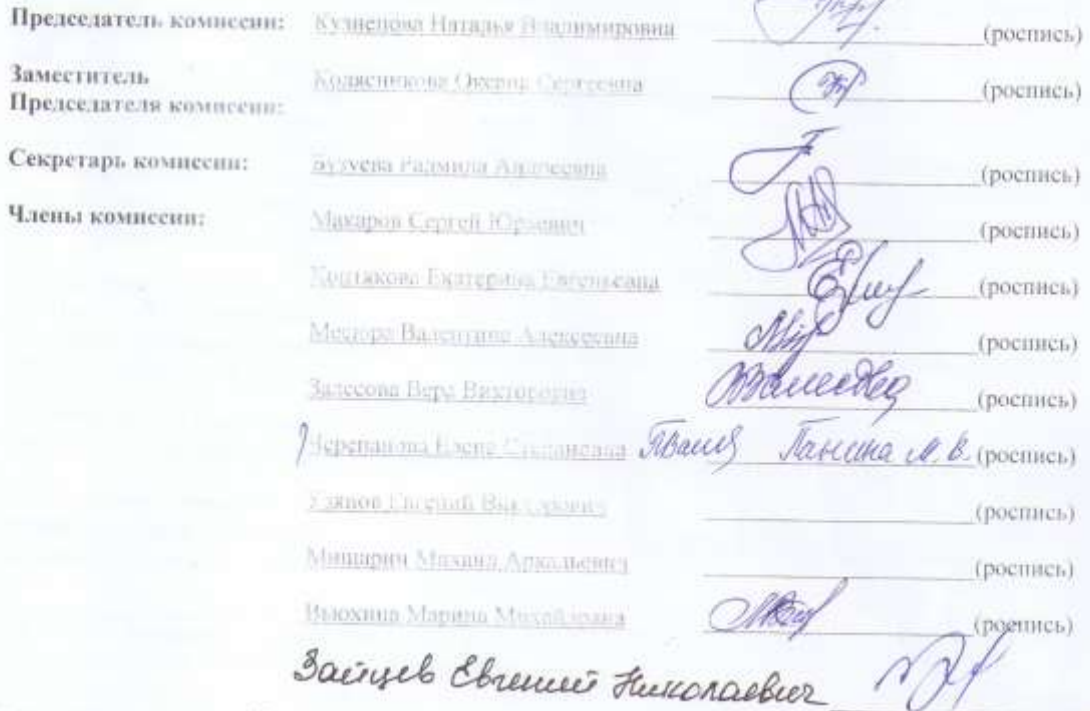 Председатель комиссии: Кузнецова Наталья Владимировна (роспись)
Заместитель
Председателя комиссии: Колясникова Оксана Сергеевна (роспись)
Секретарь комиссии: Радмила Андреевна (роспись)
Члены комиссии: Макаров Сергей Юрьевич (роспись)
Екатерина Евгеньевна (роспись)
Валентина Алексеевна (роспись)
Залесова Вера Викторовна (роспись)
Черепанова Елена Степановна Панина М. В. (роспись)
Евгений Викторович (роспись)
Мишарин Михаил Аркадьевич (роспись)
Вьюхина Марина Михайловна (роспись)
Зайцев Евгений Николаевич